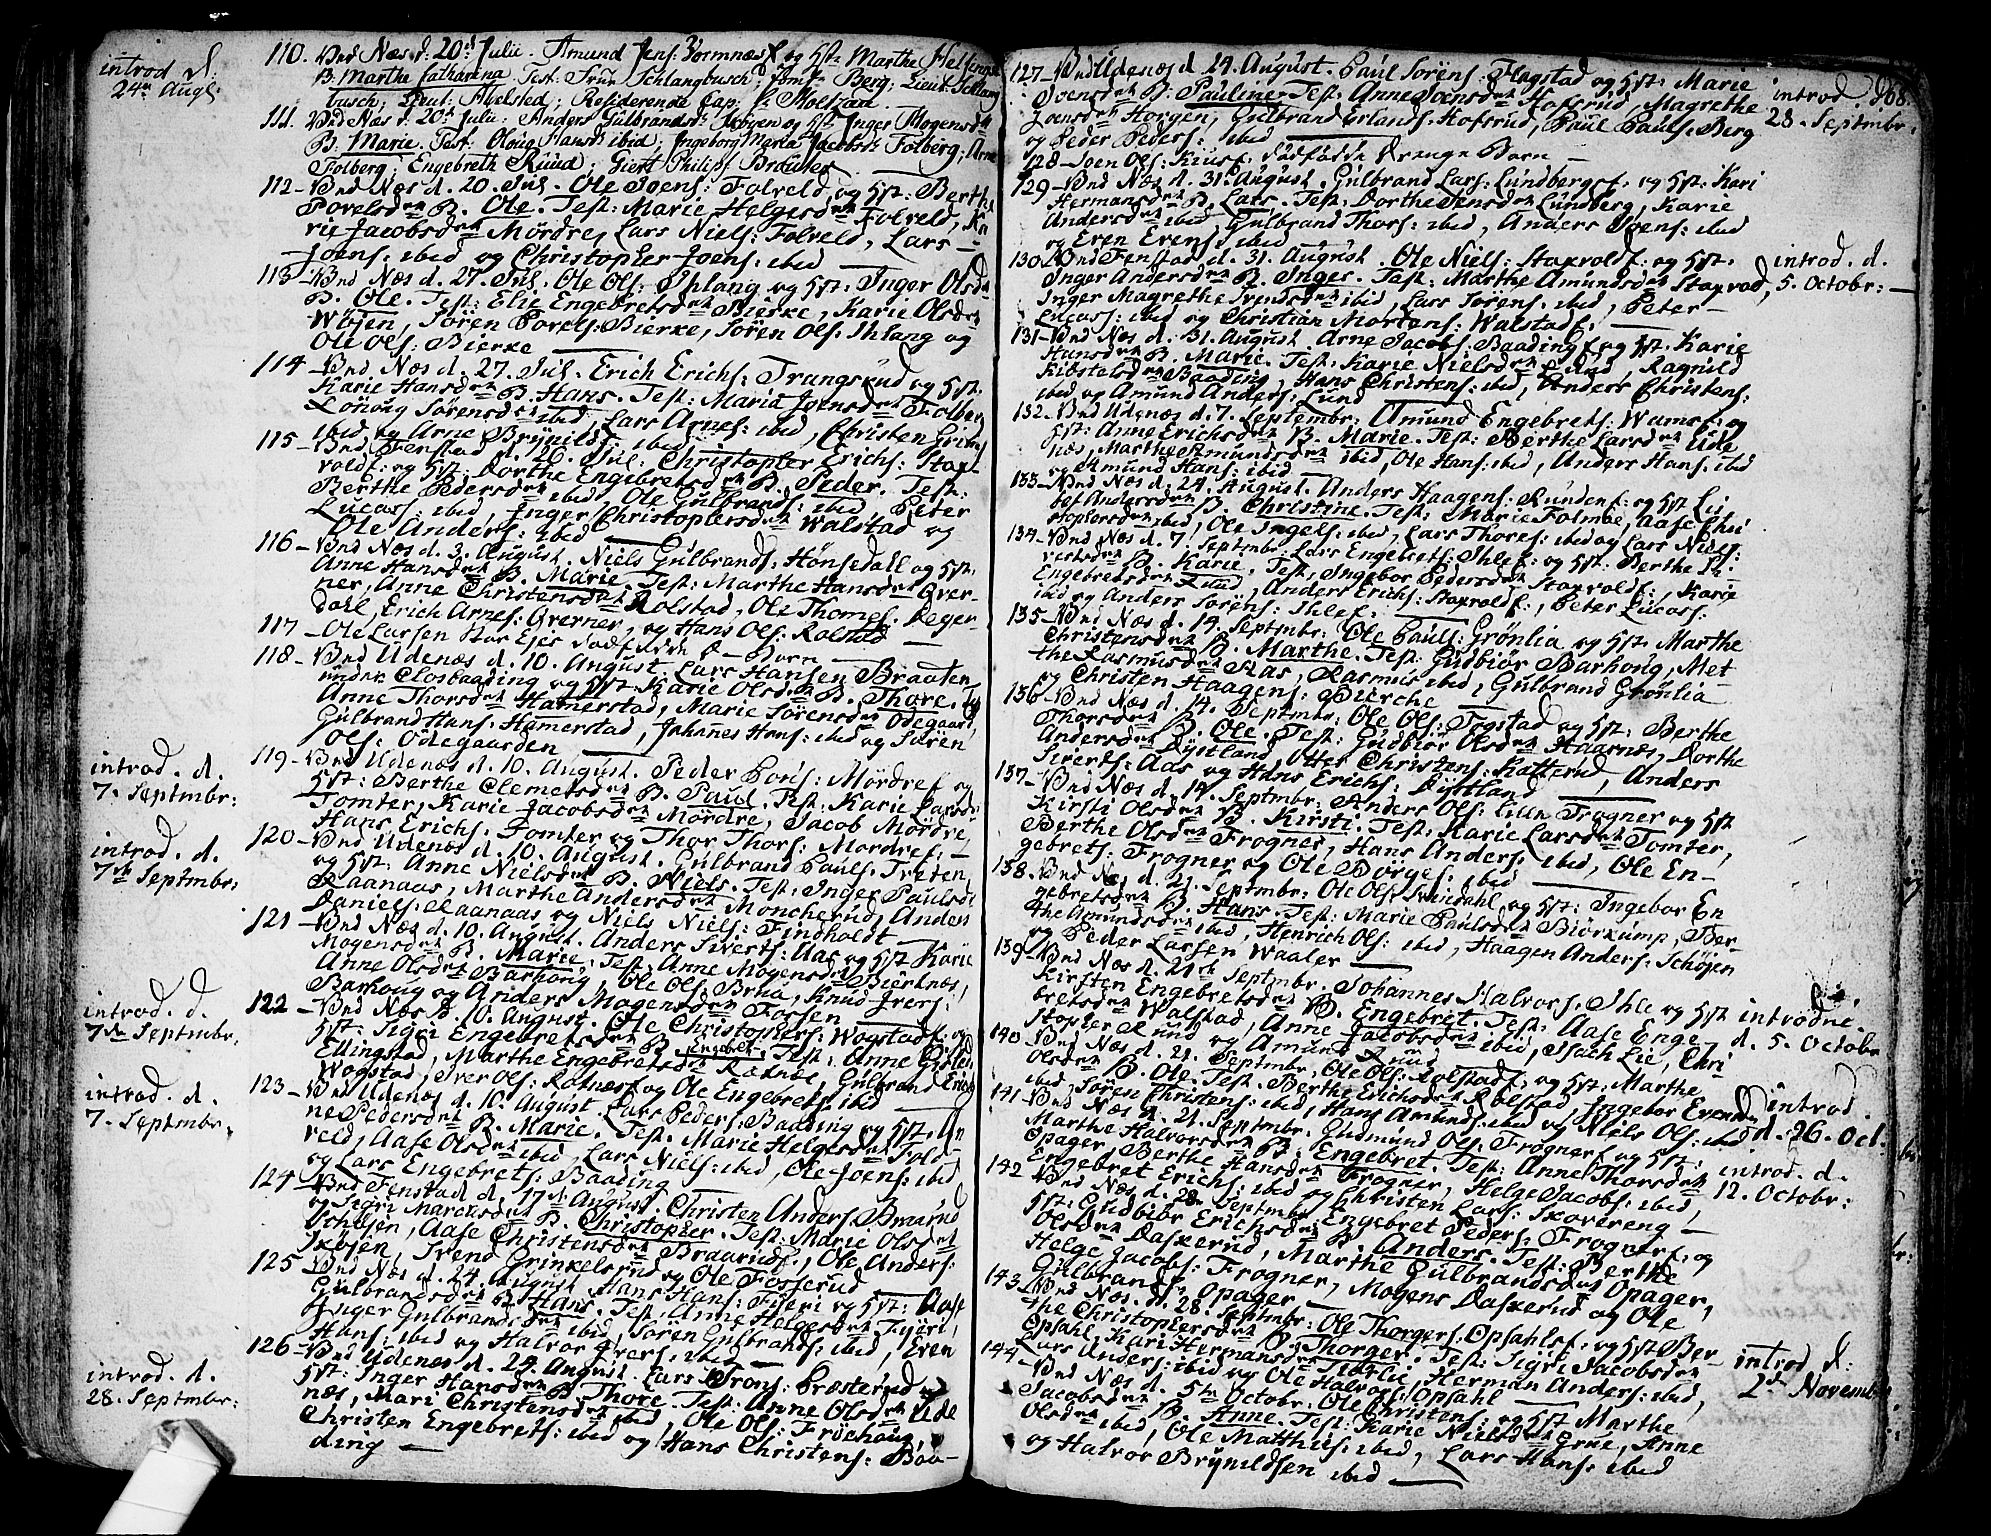 introd d.
24de Aug:
110. Vnd Næs d. 20de Julii. Amund Jens: Vormnæs og Hst: Marthe Helfings
B. Martha Catharina. Test: Frue Schlangbusch, Jomf: Berg; Lieut: Schlang
busch; Lieut: Abelsted; Residerende Cap: Hr Moltzau.
111. Vnd Næs d. 20de Julii. Anders Gulbrands: og Hst: Inger Mogensd:
B. Marie. Test: Oloug Hansd: ibid; Ingeborg Maria Jacobsd: Folberg; Arne
Folberg; Engebreth Ruud; Giert Philip
112 - Vnd Næs d. 20. Jul. Ole Joens: Folveld og Hst: Berthe
Povelsdtr B. Ole. Test: Marie Helgesdtr Folveld, Ka
rie Jacobsdtr Mördre, Lars Niels: Folveld, Lars
Joens: ibid og Christopher Joens: ibid
113 - Vnd Næs d. 27. Jul. Ole Ols: Ihlang og Hst: Inger Olsdtr
B. Ole. Test: Elie Engebretsdtr Bierke, Karie Olsdtr
Wöjen, Sören Povels: Bierke, Sören Ols: Ihlang og
Ole Ols: Bierke
114 Vnd Næs d. 27. Jul. Erich Erichs: Trangsrud og Hst:
Karie Hansdtr B. Hans. Test: Maria Joensdtr Folber
Sörensdtr ibid, Lars Arnes: ibid, Christen
ibid og Arne Brynilds: ibid
115 - Vnd Fenstad d. 26. Jul: Christopher Erichs: Stax-
rold: og Hst: Dorthe Engebretsdtr B. Peder. Test:
Berthe Pedersdtr ibid, Ole Gulbrands: ibid Peter
Lucas: ibid, Inger Christophersdtr Walstad og
Ole Anders: ibid
116 - Vnd Næs d. 3. August. Niels Gulbrands: Hönsedall og Hst:
Anne Hansdtr B. Marie. Test: Marthe Hansdtr Qver-
ner, Anne Christensdtr Rolstad, Ole Thomes:
Erich Arnes: Qverner, og Hans Ols: Rolstad
117 - Ole Larsen
118 - Vnd Udenæs d. 10. August Lars Hansen Braaten
under Closbaading og Hst: Karie Olsdtr B. Thore.
Anne Thorsdtr Hamerstad, Marie Sörensdtr Odegaar
Gulbrand Hans: Hamerstad, Johannes Hans: ibid og Sören
Ols: Odegaarden
introd. d.
7. Septmbr:
119 - Vnd Udenæs d. 10. August. Peder Mördre og
Hst: Berthe Clemetsdtr B. Paul. Test: Karie Larsd:
Tomter, Karie Jacobsdtr Mördre, Jacob Mördre,
Hans Erichs: Tomter og Thor Thors: Mordre:
introd. d.
7de Septmbr:
120 - Vnd Udenæs d. 10. August. Gulbrand Pauls:
og Hst: Anne Nielsdtr B. Niels. Test: Inger Paulsd:
Raanaas, Marthe Andersdtr Moncherud, Anders
Daniels: Raanaas og Niels Niels: Findholdt
121 - Vnd Næs d. 10. August. Anders Siverts: Aas og Hst Karie
Mogensdtr B. Marie. Test: Anne Mogensdtr Biertnes,
Anne Olsdtr Barhoug, Ole Ols: Knud Ivers:
Barhoug og Anders Mogens: Fossen
introd. d.
7de Septmbr.
122 - Vnd Næs d. 10. August. Ole Christophers: Wogstad: og
Hst: Sigri Engebretsdtr B. Engebret. Test: Anne
Ellingstad, Marthe Engebretsdtr Gulbrand Erichs
Wogstad, Iver Ols: og Ole Engebrets: ibid
introd. d.
7. Septmbr:
123 - Vnd Udenæs d. 10. August. Lars Peders: Baading og Hst: An
ne Pedersdtr B. Marie. Test: Marie Helgesdtr Fol
veld, Aase Olsdtr ibid, Lars Niels: ibid, Ole Joens: ibid
og Lars Engebrets: Baading
124 - Vnd Fenstad d. 17de August. Christen Anders: Braarud
og Sigri Marcusdtr B. Christopher. Test: Marie Olsdtr
Schöjen, Aase Christensdtr Braarud, Ole Anders:
Sköjen, Svend Grinkelsrud og Ole Fosserud
125 - Vnd Næs d. 24. August Hans Hans: Fjeri og Hst: Aase
Gulbrandsdtr B. Hans. Test: Anne Helgesdtr Fjöri,
Inger Gulbrandsdtr ibid, Sören Gulbrands: ibid, Even
Hans: ibid og Halvor Ivers: ibid
introd. d.
28. Septmbr:
126 - Vnd Udenæs d. 24. August. Lars Trons: Præsterud og
Hst: Inger Hansdtr B. Thore. Test: Anne Olsdtr Ude
næs, Mari Christensdtr ibid, Ole Ols: Fröchoug,
Christen Engebrets: ibid og Hans Christens: Baa-
ding
168.
127 - Vnd Udenæs d. 24. August. Paul Sörens: Flagstad og Hst: Marie
Joensdtr B. Pauline. Test: Anne Joensdtr Hofsrud, Magrethe
Joensdtr Horgen, Gulbrand Erlands: Hofsrud, Paul Pauls: Berg
og Peder Peders: ibid
introd. d.
28. Septmbr.
128 - Joen Ols: dödfödde Drenge Barn
129 - Vnd Næs d. 31. August. Gulbrand Lars: Lundberg: og Hst: Kari
Hermansdtr B. Lars. Test: Dorthe Jensdtr Lundberg, Karie
Andersdtr ibid, Gulbrand Thors: ibid, Anders Joens: ibid
og Even Evens: ibid
130 Vnd Fenstad d. 31. August. Ole Niels: Staxrold: og Hst:
Inger Andersdtr B. Inger. Test: Marthe Amundsdtr Staxrod,
Inger Magrethe Svendsdtr ibid, Lars Sörens: ibid, Peter
Lucas: ibid og Christian Mortens: Walstad.
introd. d.
5. Octobr:
131 - Vnd Næs d. 31. August. Arne Jacobs: Baading og Hst. Karie
Hansdtr B. Marie. Test: Karie Nielsdtr Lund, Ragnild
Kibstelsdtr Baading, Hans Christens: ibid, Anders Christens:
ibid og Amund Anders: Lund
132 - Vnd Udenæs d. 7. Septembr: Amund Engebrets: og
Hst: Anne Erichsdtr B. Marie. Test: Berthe Larsdtr Ude
næs, Marthe Amundsdtr ibid, Ole Hans: ibid, Anders Hans: ibid
og Amund Hans: ibid
133 - Vnd Næs d. 24. August. Anders Haagens: Runden: og Hst Lis
bet Andersdtr B. Christine. Test: Marie Folmoe, Aase Chri
stophersdtr ibid, Ole Ingels: ibid, Lars Thores: ibid og Lars Niels:
134 - Vnd Næs d. 7. Septmbr. Lars Engebrets: Ihle: og Hst: Berthe Si
vertsdtr B. Karie. Test: Ingebor Pedersdtr Staxrold:, Karie
Engebretsdtr Ruud, Anders Erichs: Staxrold:, Peter Lucas:
ibid og Anders Sörens: Ihle.
135 - Vnd Næs d. 14. Septmbr: Ole Pauls: Grönlia og Hst: Marthe
Christensdtr B. Marthe. Test: Gudbiör Barhoug, Met
the Rasmusdtr Aas, Rasmus ibid, Gulbrand Grönlia
og Christen Haagens: Bierche
136 - Vnd Næs d. 14. Septmbr: Ole Ols: Frogstad og Hst: Berthe
Thorsdtr B. Ole. Test: Gudbiör Olsdtr Haarnæs, Dorthe
Andersdtr Dystland Otter Christens: Katterud, Anders
Siverts: Aas og Hans Erichs: Dystland
137 - Vnd Næs d. 14. Septmbr: Anders Ols: Lille Frogner og Hst
Kirsti Olsdtr B. Kirsti. Test: Karie Larsdtr Tomter,
Berthe Olsdtr Frogner, Hans Anders: ibid, Ole En-
gebrets: Frogner og Ole Börges: ibid
138. Vnd Næs d. 21. Septmbr: Ole Ols: Svindahl, og Hst: Ingebor En
gebretsdtr B. Hans. Test: Marie Paulsdtr Biörkump, Ber-
the Amundsdtr ibid, Henrich Ols: ibid, Haagen Anders: Schöjen
og Peder Larsen Waaler
139 - Vnd Næs d. 21de Septmbr. Johannes Halvors: Ihle og Hst
Kirsten Engebretsdtr B. Engebret. Test: Aase Enge-
bretsdtr Walstad, Anne Jacobsdtr ibid, Isach Lie, Chri
stopher Rund og Amund Ruud
introdne.
d. 5. Octobr
140 Vnd Næs d. 21. Septmbr. Ole Ols: Rolstad: og Hst: Marthe
Olsdtr B. Ole. Test: Berthe Erichsdtr Rolstad, Ingebor Evensd
ibid, Sören Christens: ibid, Hans Amunds: ibid og Niels Ols: ibid
introd.
d. 26. Oct.
141 - Vnd Næs d. 21. Septmbr. Gudmund Ols: Frogner: og Hst:
Marthe Halvorsdtr B. Engebret. Test: Anne Thorsdtr
Opager Berthe Hansdtr Frogner, Helge Jacobs: ibid,
Engebret Erichs: ibid og Christen Lars: Skovereng
introd. d.
12. Octobr:
142 Vnd Næs d. 28. Septmbr Engebret Peders: Frogner: og
Hst: Gudbiör Erichsdtr B. Anders. Test: Berthe
Olsdtr Daskerud, Marthe Gulbrandsdtr Opager,
Helge Jacobs: Frogner, Mogens Daskerud og Ole
Gulbrands: Opager
143 - Vnd Næs d. 28. Septmbr: Ole Thorgers: Opsahl: og Hst Ber-
the Christophersdtr B. Thorger. Test: Sigri Jacobsdtr
Opsahl, Kari Hermansdtr Herman Anders: ibid,
Lars Anders: ibid og Ole Halvors: Opsahl
introd d.
2de Novemb
144 - Vnd Næs d. 5te Octobr. Ole Christens: og Hst Marthe
Jacobsdtr B. Anne. Test: Karie Nielsdtr Grue, Anne
Olsdtr ibid, Ole Matthis: ibid, Lars Hans: ibid
og Halvor Brynildsen ibid